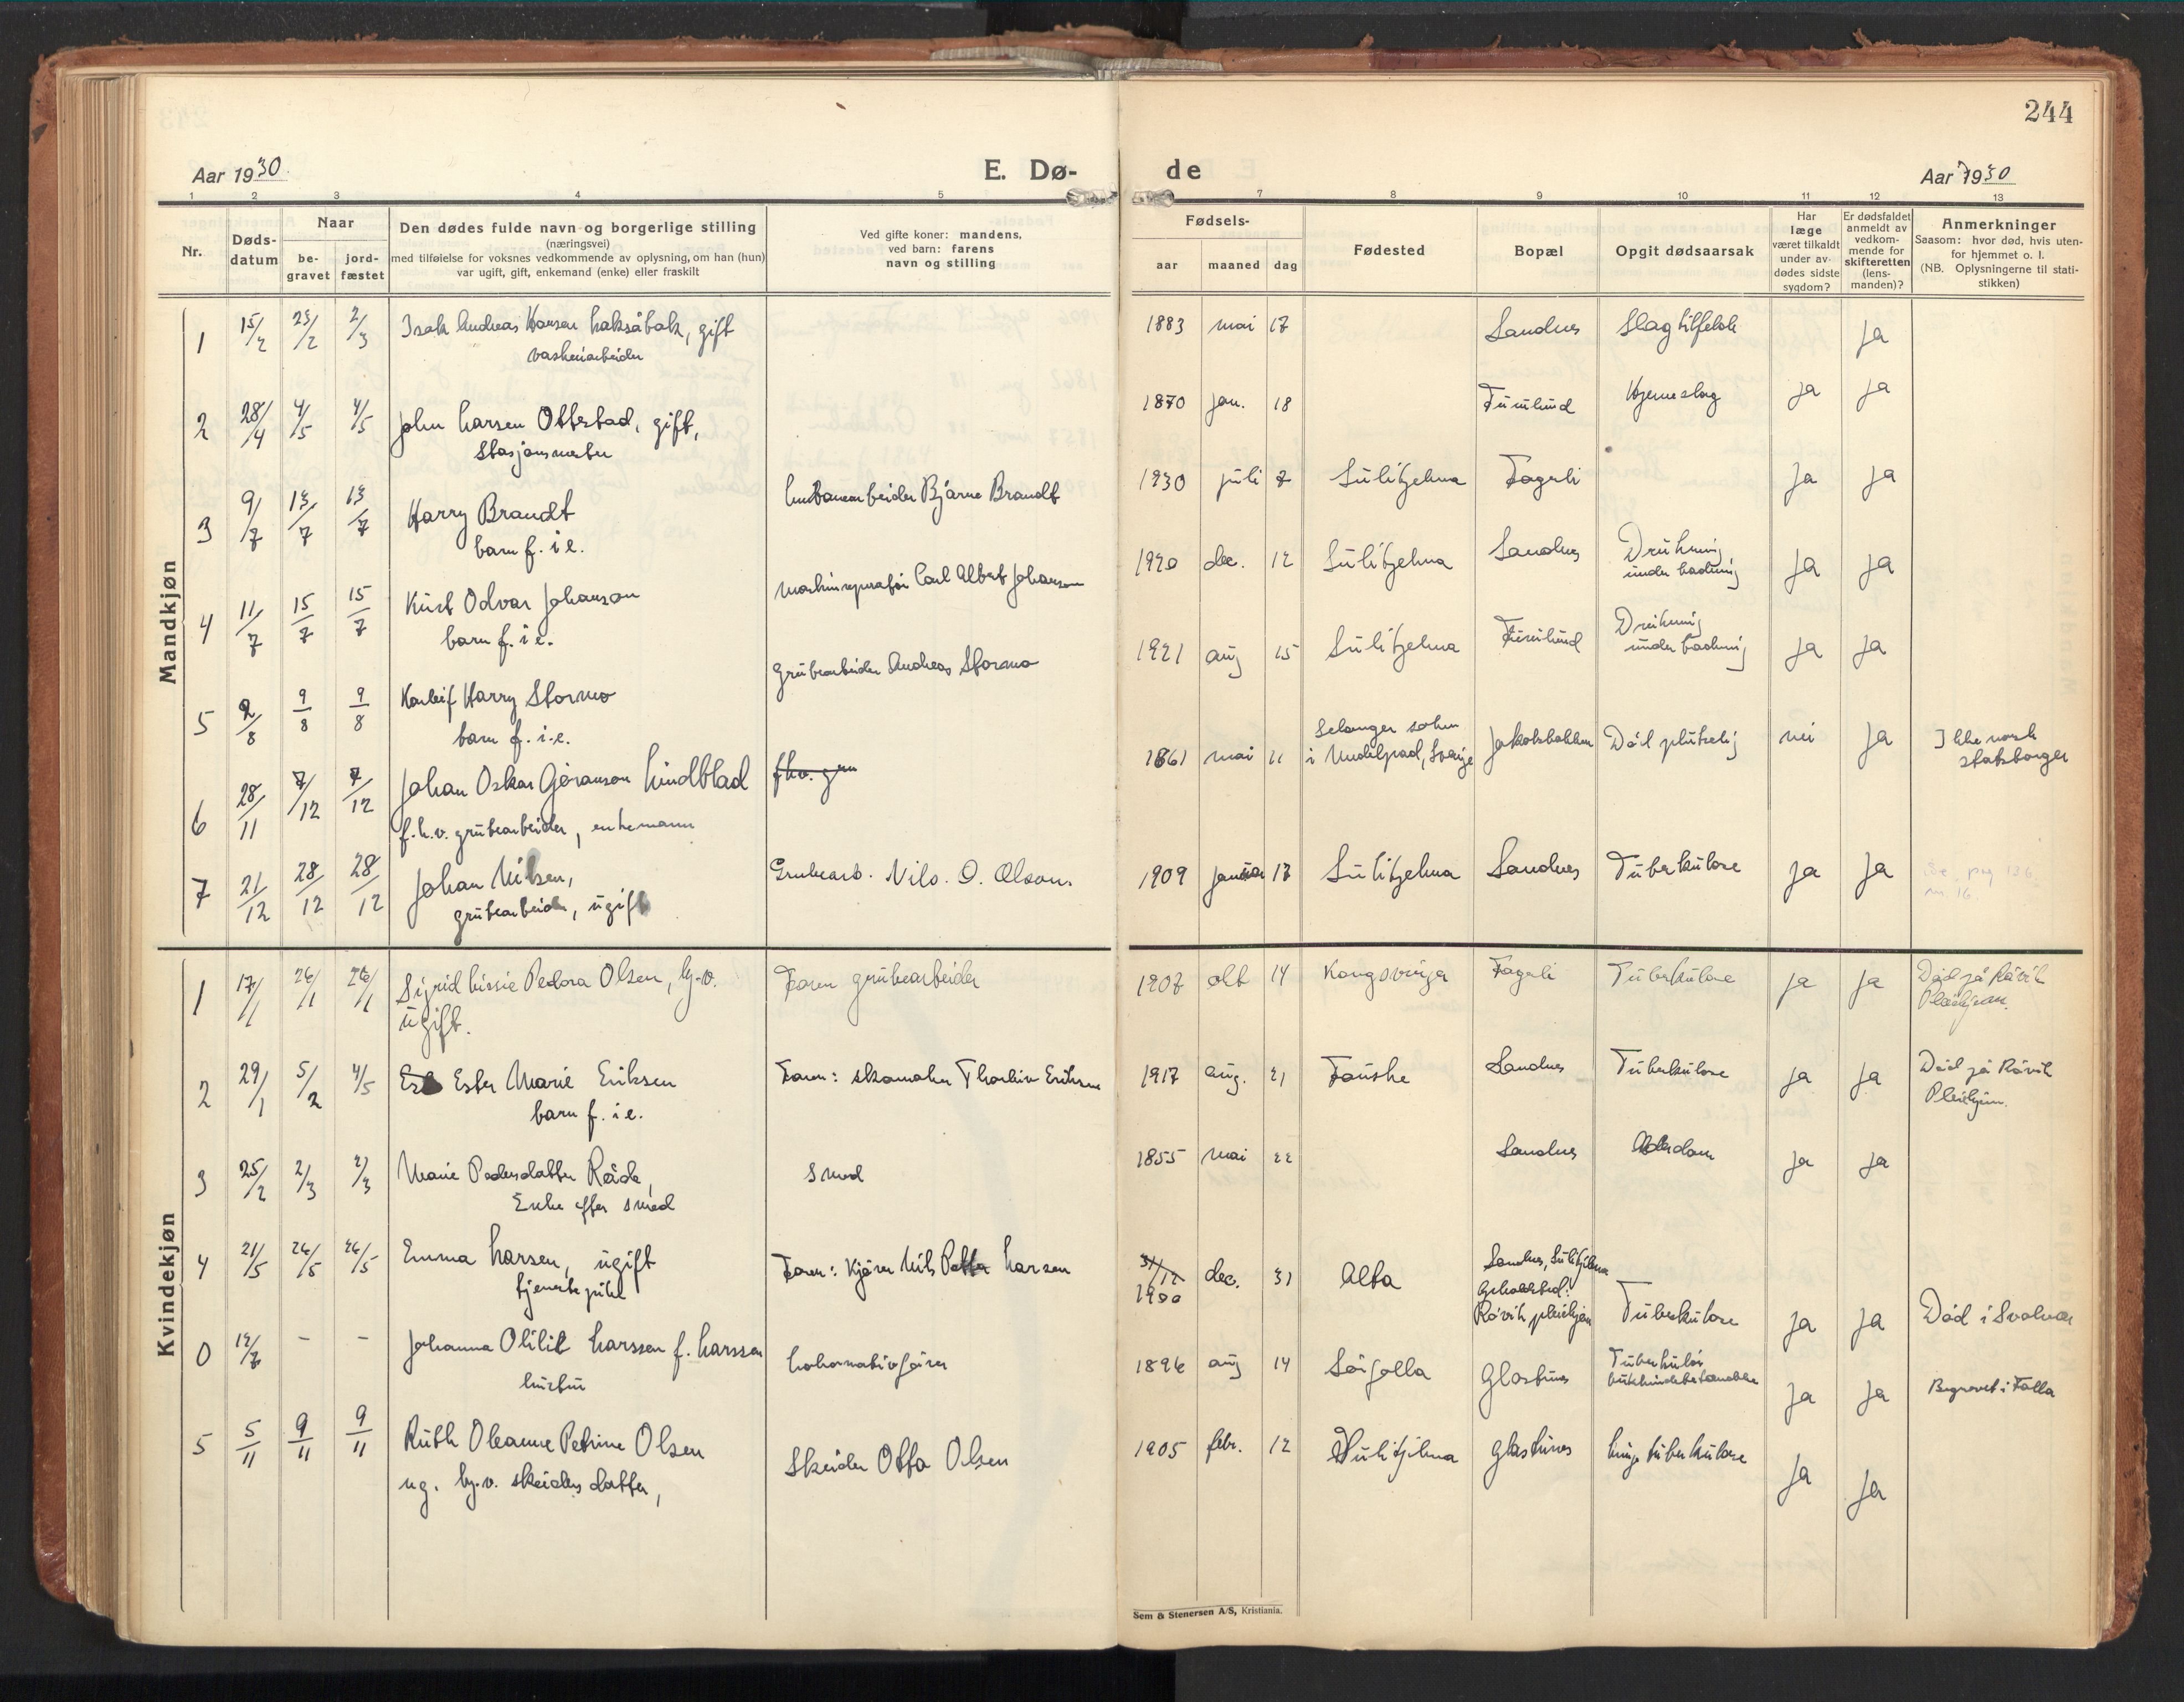 244
Aar 1930.
E. Dø-
de
Aar 1930
1 2 3 4 5 7 8 9 10 11 12 13
Nr.
Døds-
datum
Naar
be-
gravet
jord-
fæstet
Den dødes fulde navn og borgerlige stilling
(næringsvei)
med tilføielse for voksnes vedkommende av oplysning, om han (hun)
var ugift, gift, enkemand (enke) eller fraskilt
Ved gifte koner: mandens,
ved barn: farens
navn og stilling
Fødsels-
aar maaned dag
Fødested
Bopæl
Opgit dødsaarsak
Har
læge
været tilkaldt
under av-
dødes sidste
sygdom?
Er dødsfaldet
anmeldt av
vedkom-
mende for
skifteretten
(lens-
manden)?
Anmerkninger
Saasom: hvor død, hvis uten-
for hjemmet o. l.
(NB. Oplysningerne til stati-
stikken)
Mandkjøn
1 15/2 23/2 2/3 Isak Andreas Hansen Laksåbak, gift 1883 mai 17 Sandnes Slagtilfelde ja
vaskeriarbeider
2 28/4 4/5 4/5 John Larsen Ottestad, gift, 1870 jan. 18 Furulund Hjerneslag ja ja
Stasjonsmester
3 9/7 13/7 13/7 Harry Brandt Linbanearbeider Bjarne Brandt 1930 juli 7 Sulitjelma Fagerli ja ja
barn f. i e.
4 11/7 15/7 15/7 Kurt Odvar Johanson Maskinreparatør Carl Albert Johanson 1920 dec. 12 Sulitjelma Sandnes Drukning ja ja
barn f. i e. under badning
5 2/8 9/8 9/8 Karleif Harry Stormo Grubearbeider Andreas Stormo 1921 aug 15 Sulitjelma Furulund Drukning ja ja
barn f. i. e. under badning
6 28/11 7/12 7/12 Johan Oskar Göranson Lindblad fhv. gru 1861 mai 11 Selanger sokn Jakobsbakken Död plutselig nei ja Ikke norsk
f.h.v. grubearbeider, enkemann i Medelpad, Sverige statsborger
7 21/12 28/12 28/12 Johan Nilsen, Grubearb. Nils. O. Olson. 1909 januar 17 Sulitjelma Sandnes Tuberkulose ja ja Se pag 136
grubearbeider, ugift nr. 16.
Kvindekjøn
1 17/1 26/1 26/1 Sigrid Lissie Pedora Olsen, hj.v. Faren grubearbeider 1907 okt 14 Kongsvinger Fagerli Tuberkulose ja ja Död på Rövik
ugift. Pleiehjem.
2 29/1 5/2 4/5 Ester Marie Eriksen Faren: skomaker Thorleiv Eriksen 1917 aug. 21 Fauske Sandnes Tuberkulose ja ja Död på Rövik
barn f. i e. Pleiehjem.
3 25/2 2/3 2/3 Marie Pedersdatter Råde, smed 1855 mai 22 Sandnes Alderdom ja ja
Enke efter smed
4 21/5 26/5 26/5 Emma Larsen, ugift Faren: Kjører Nils Petter Larsen 31/12 1900 dec. 31 Alta Sandnes, Sulitjelma
tjenestepike Opholdsted:
Rövik pleiehjem Tuberkulose ja ja Död i Svolvær
0 14/7 - - Johanna Olilie Larssen f. Larssen Lokomotivförer 1896 aug 14 Sörfolla Glastunes Tuberkulös ja ja Begravet i Folla
hustru bukhindebetændelse
5 5/11 9/11 9/11 Ruth Oleanne Petrine Olsen Skeider Otto Olsen 1905 febr. 12 Sulitjelma Glastunes Lungetuberkulose ja ja
ug. hj.v. skeiders datter,
Sem & Stenersen A/S, Kristiania.